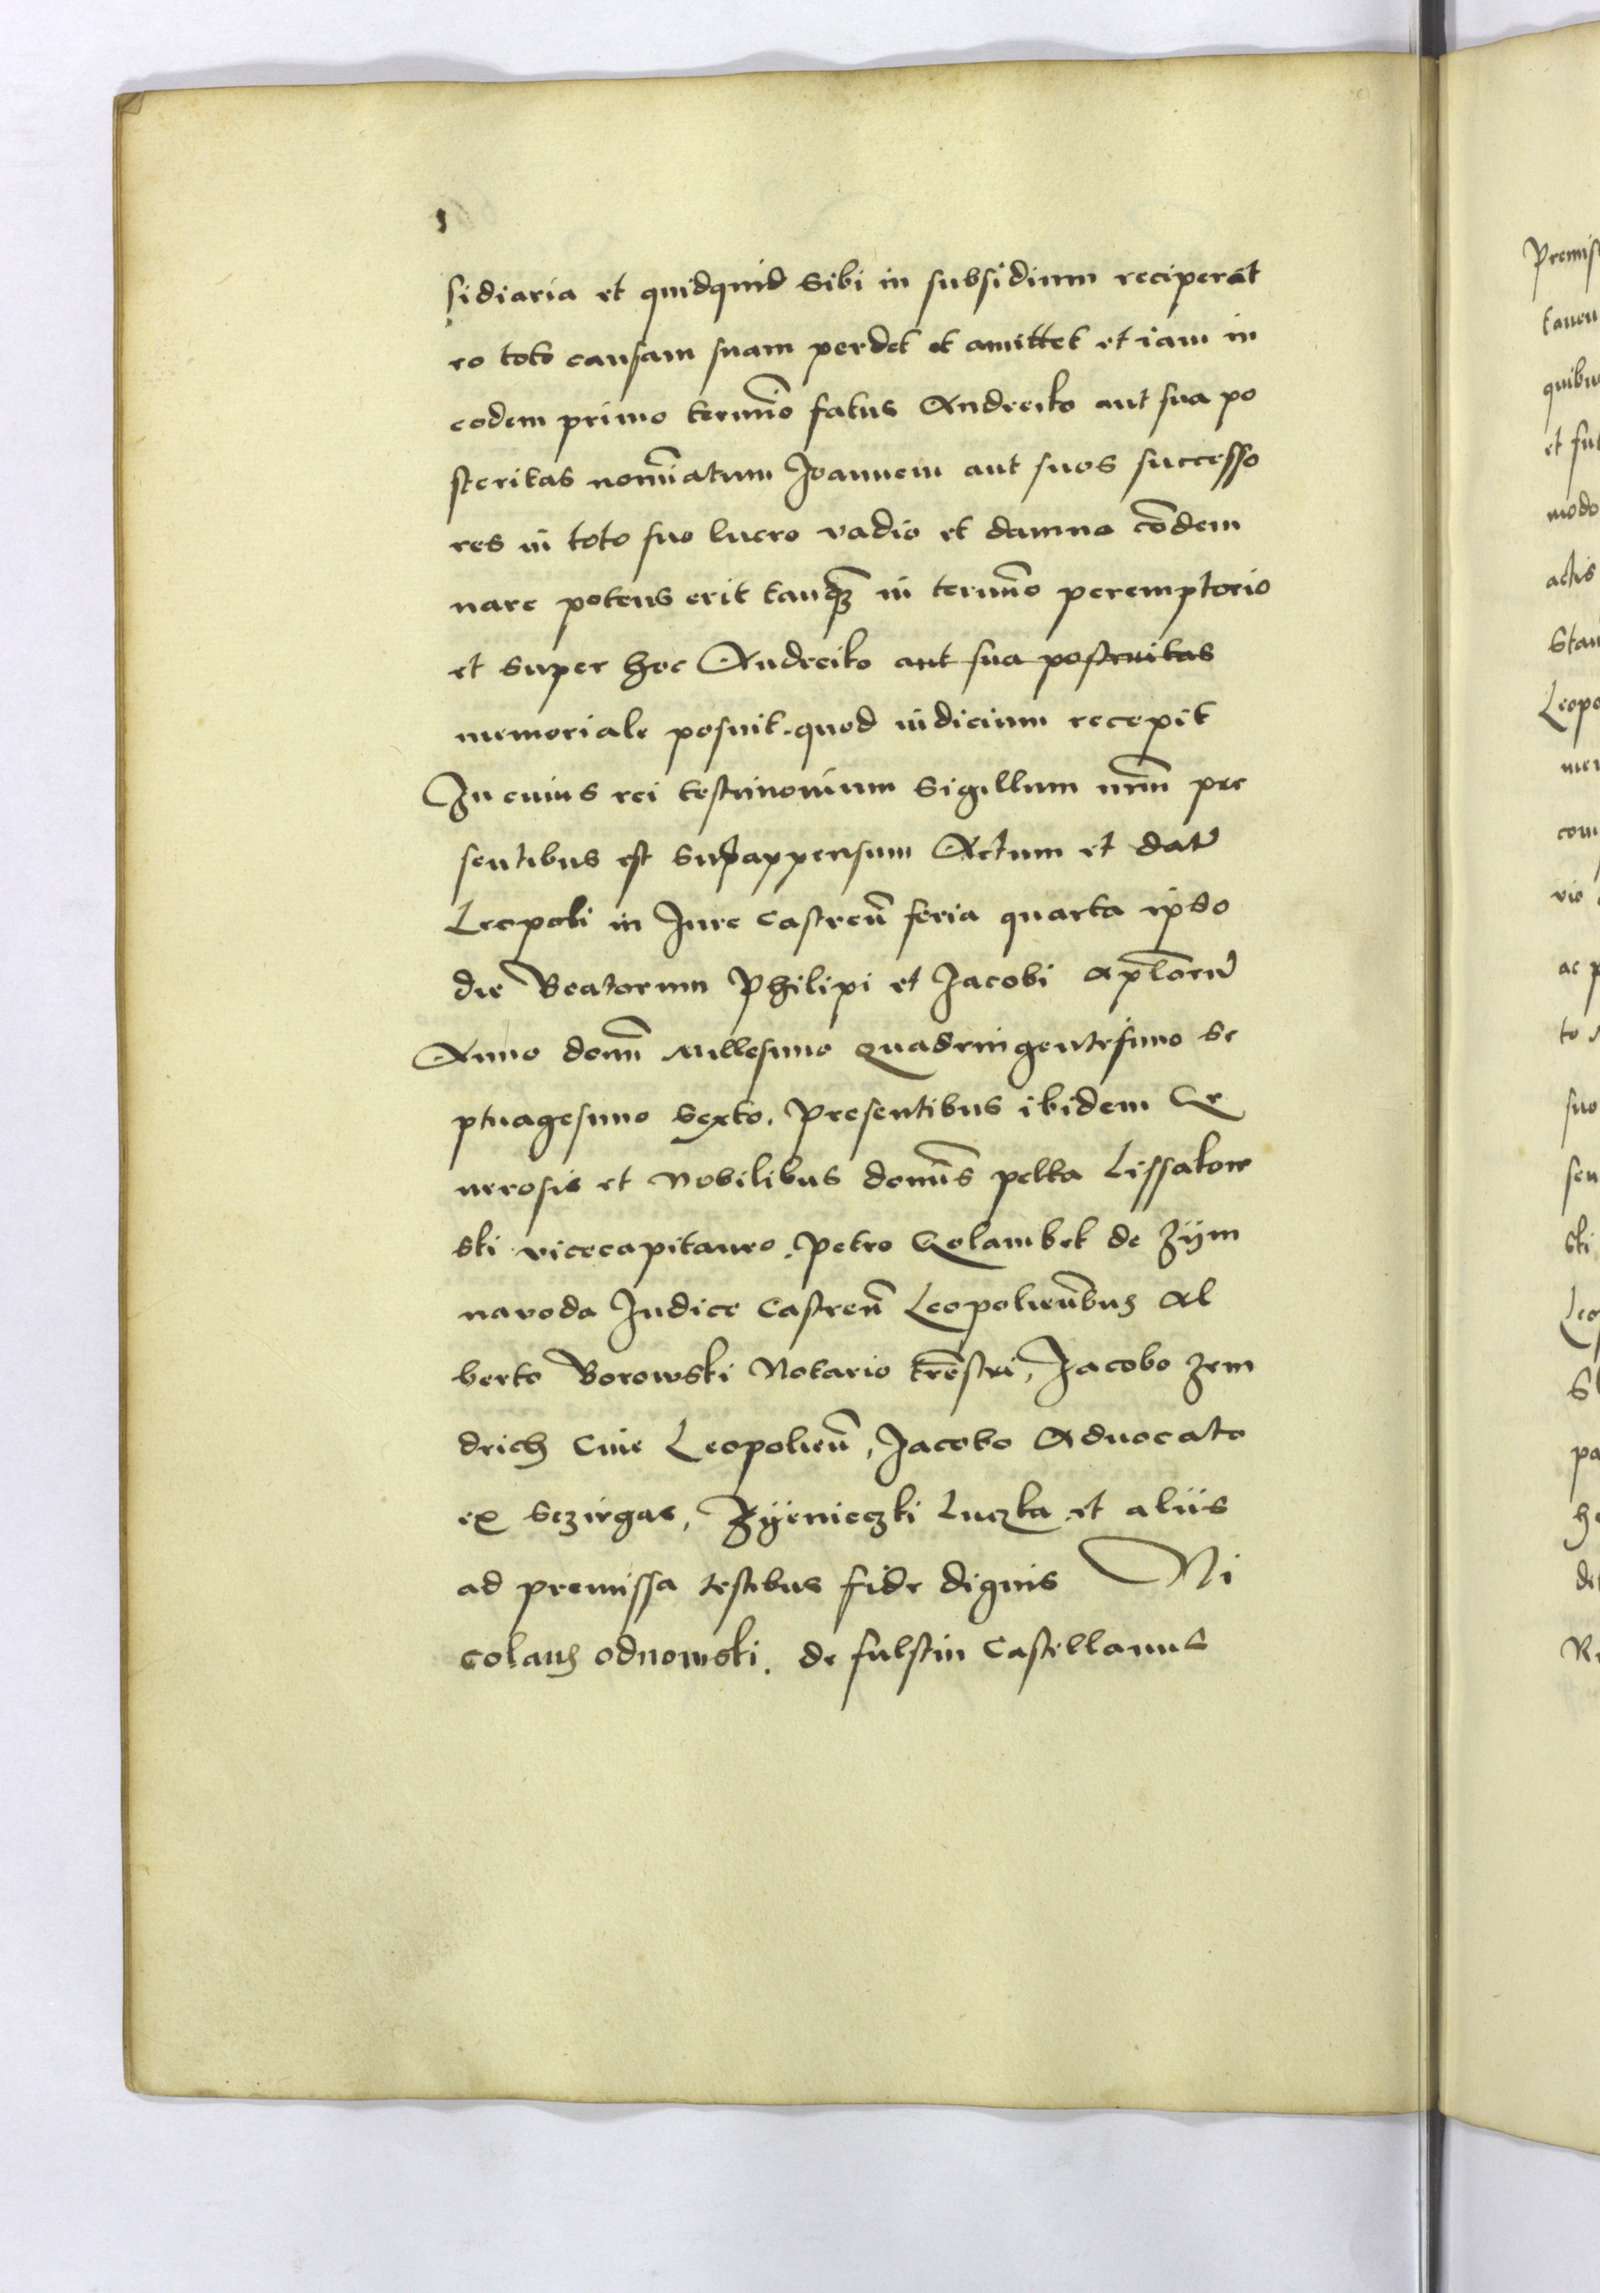 sidiaria et quidquid sibi in subsidium reciperet
eo toto causam suam perdet et amittet et iam in
eodem primo termĩo fatus Andreiko aut sua po
steritas nomĩatum Joannem aut suos successo
res in toto suo lucro vadio et damno cõdem
nare potens erit tanq̃ in termĩo peremptorio
et super hoc Andreiko aut sua posteritas
memoriale posuit. quod iudicium recepit
In cuius rei testimonium sigillum nr̃m pre
sentibus est subappensum Actum et datũ
Leopoli in Jure castren̄ feria quarta ipso
die Beatorum Philipi et Jacobi apl̃orũ
Anno domĩ millesimo quadringentesimo se
ptuagesimo sexto. Presentibus ibidem Ge
nerosis et Nobilibus domĩs pelka Lissakow
ski vicecapitaneo. Petro Golambek de Zÿm
navoda Judice Castren̄ Leopolien̄bus Al
berto Borowski Notario tr̃estri, Jacobo
drich Cive Leopolien̄, Jacobo Advocato
ex Sczirzec, Luczka et aliis
ad premissa testibus fide dignis Ni
colaus odnowski. de fulstin Castellanus
Premis
quibus
et fu
modo
actis
Stan
Leopo
mer
com
vio
ac p
to
suo
sen
ski
Leo
S
pa
h
de
R